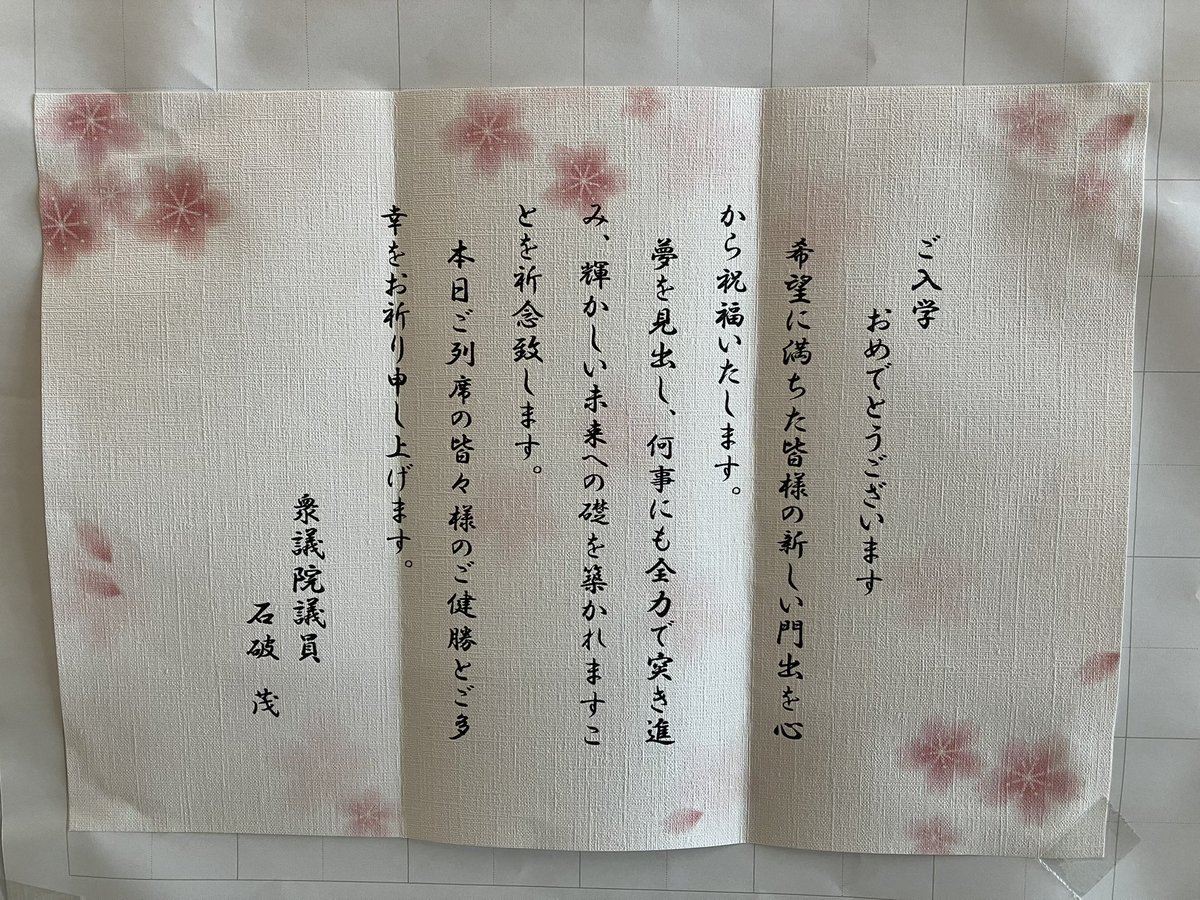 ご入学
おめでとうございます
希望に満ちた皆様の新しい門出を心
から祝福いたします。
夢を見出し、何事にも全力で突き進
み、輝かしい未来への礎を築かれますこ
とを祈念致します。
本日ご列席の皆々様のご健勝とご多
幸をお祈り申し上げます。
衆議院議員
石破 茂